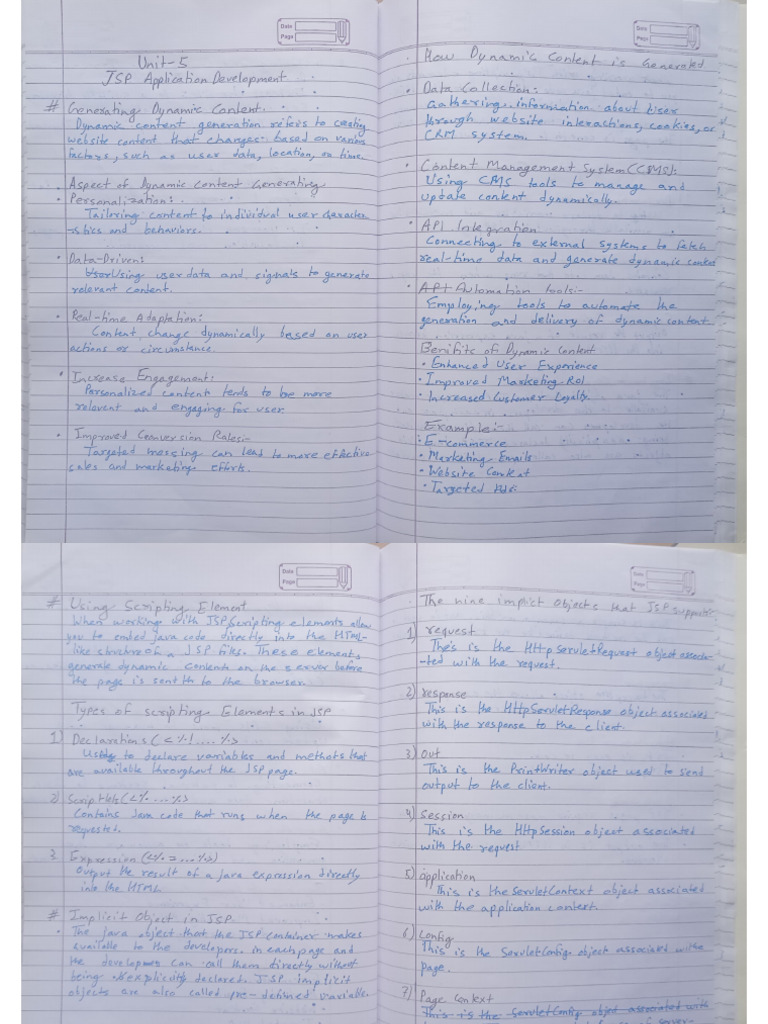 Date
Page
Unit-5
JSP Application Development
# Generating Dynamic Content.
Dynamic content generation refers to creating
website content that changes based on various
factors, such as user data, location, or time.
Aspect of Dynamic Content Generating
• Personalization:
Tailoring content to individual user character
-stics and behaviors.
• Data-Driven:
Using user data and signals to generate
relevant content.
• Real-time Adaptation:
Content change dynamically based on user
actions or circumstance.
• Increase Engagement:
Personalized content tends to be more
relevent and engaging for user
• Improved Conversion Rates:-
Targated messing can lead to more effective
sales and marketing efforts.
Date
Page
• How Dynamic Content is Generated
• Data Collection:
Gathering information about user
through website interactions, cookies, or
CRM system.
• Content Management System (CMS):
Using CMS tools to manage and
update content dynamically.
• API Integration
Connecting to external systems to fetch
real-time data and generate dynamic content
• API Automation tools:-
Employing tools to automate the
generation and delivery of dynamic content
Benifits of Dynamic Content
• Enhanced User Experience
• Improved Marketing RoI
• Increased Customer Loyalty.
Example:-
• E-commerce
• Marketing Emails
• Website Content
• Targated Ads:
Date
Page
# Using Scripting Element
When working with JSP, Scripting elements allow
you to embed java code directly into the HTML-
like structure of a JSP files. These elements
generate dynamic contents on the server before
the page is sent to the browser.
Types of scripting Elements in JSP
1) Declarations (<%! .... %>
Using to declare variables and methods that
are available throughout the JSP page.
2) Scriptlets (<% ... %>)
Contains Java code that runs when the page is
requested.
3. Expression (<% = ... %>)
Output the result of a java expression directly
into the HTML
# Implicit Object in JSP
• The java object that the JSP container makes
available to the developers in each page and
the developer can call them directly without
being explicitly declared. JSP implicit
objects are also called pre-defined variable.
Date
Page
The nine implict Objects that JSP supports:-
1) request
This is the HttpServletRequest object associa-
-ted with the request.
2) response
This is the HttpServletResponse object associated
with the response to the client.
3) Out
This is the PrintWriter object used to send
output to the client.
4) Session
This is the HttpSession object associated
with the request
5) application
This is the ServletContext object associated
with the application context.
6) Config
This is the ServletConfig object associated with
page.
7) Page Context
This is the ServletConfig object associated with